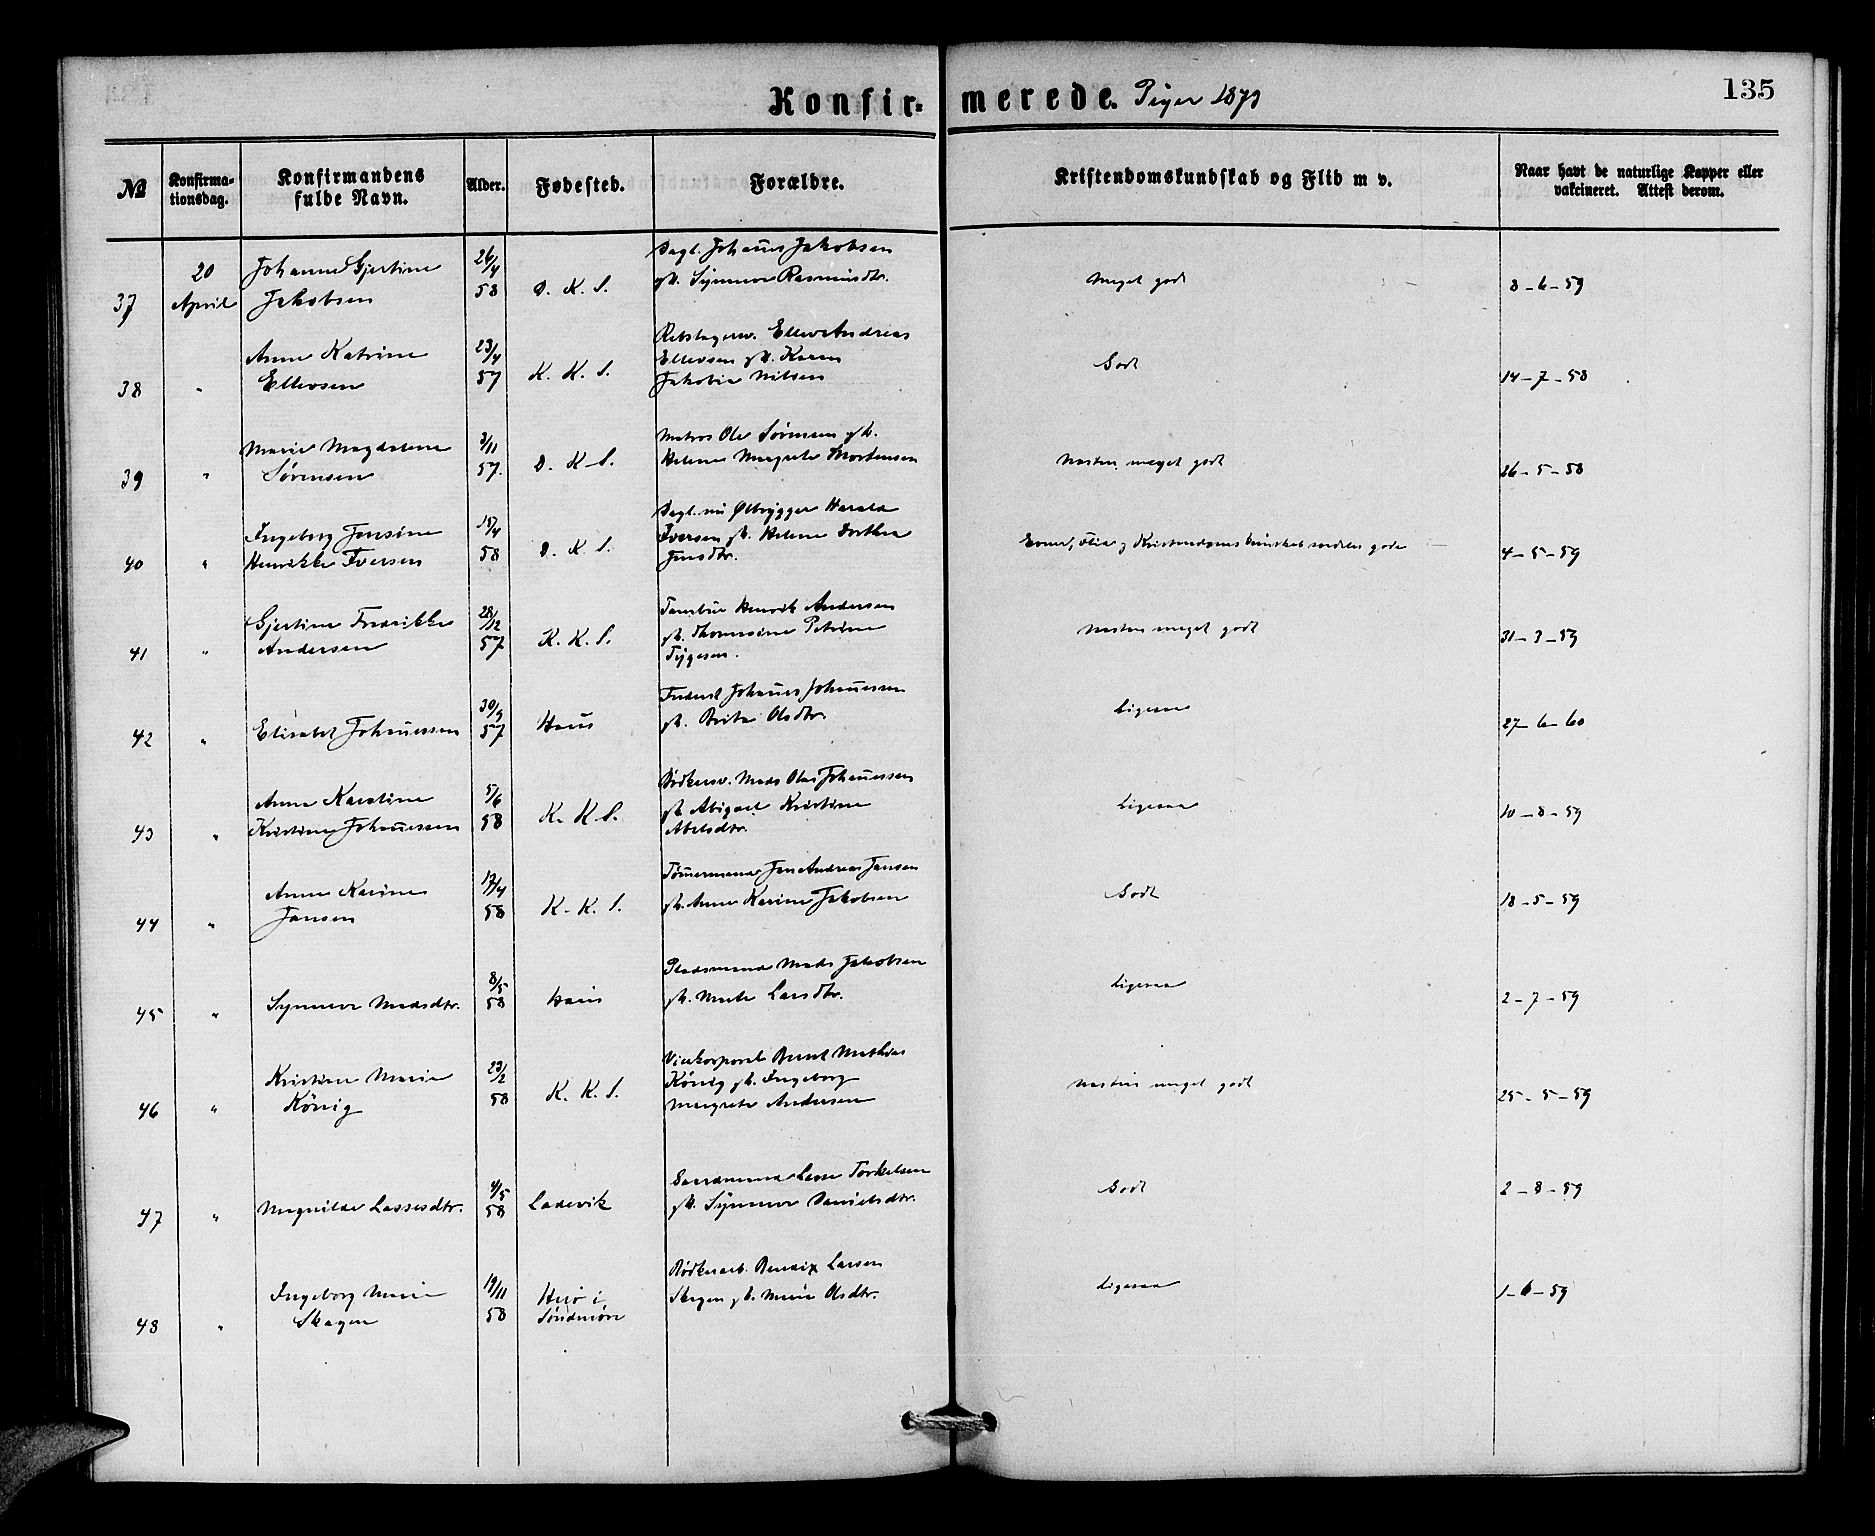 Konfir- merede. Piger 1873
135
№
Konfirma-
tionsdag.
Konfirmandens
fulde Navn.
Alder.
Fødested.
Forældre.
Kristendomskundskab og Flid m v.
Naar havt de naturlige Kopper eller
vakcineret. Attest derom.
37
20
April
Johanne Gjertine
Jakobsen
26/4
58
D. K. S.
Dagl. Johañes Jakobsen
gh. Synneve Rasmusdtr.
Meget godt
8-6-59
38
"
Anne Katrine
Ellevsen
23/4
57
K. K. S.
Ellev Andreas
Ellevsen gh. Karen
Jakobia Nilsen
Godt
14-7-58
39
"
Marie Magdalena
Sørensen
3/11
57.
D. K. S.
Matros Ole Sørensen gh.
Helene Margrete Mortensen
Næsten meget godt
26-5-58
40
"
Ingeborg Jensine
Henrikke Iversen
15/4
58
D. K. S.
Dagl. nu Ølbrygger Harald
Iversen gh. Helene Dorthea
Jensdtr.
Evner, Flid og Kristendomskundskab gode
4-5-59
41
"
Gjertine Fredrikke
Andersen
28/12
57
K. K. S.
Tambur Henrik Andersen
gh. Thomasine Petrine
Tygesen.
Næsten meget godt
31-3-59
42
"
Elisabet Johañessen
30/9
57
Haus
Johañes Johañessen
gh. Brita Olsdtr.
Ligesaa
27-6-60
43
"
Anna Karoline
Kristine Johañessen
5/6
58
K. K. S.
Bødkersv. Mads Olai Johañessen
gh. Abigael Kristine
Abelsdtr.
Ligesaa
10-8-59
44
"
Anne Karine
Jansen
17/4
58
K. K. S.
Tømermand Jan Andreas Jansen
gh. Anne Karine Jakobsen
Godt
18-5-59
45
"
Synneve Madsdtr.
8/5
58
Haus
Pladsmand Mads Jakobsen
gh. Marte Larsdtr.
Ligesaa
2-7-59
46
"
Kristine Marie
König
23/2
58
K. K. S.
Vicekorporal Bernt Mathias
König gh. Ingeborg
Margrete Andersen
Næsten meget godt
25-5-59
47
"
Magnilde Lassesdtr.
4/5
58
Ladevik
Gaardmand Lasse Torkelsen
gh. Synneve Danielsdtr.
Godt
2-8-59
48
"
Ingeborg Marie
Skagen
19/11
58
Herø i
Søndmøre
Bødkerarb. Larsen
Skagen gh. Marie Olsdtr.
Ligesaa
1-6-59